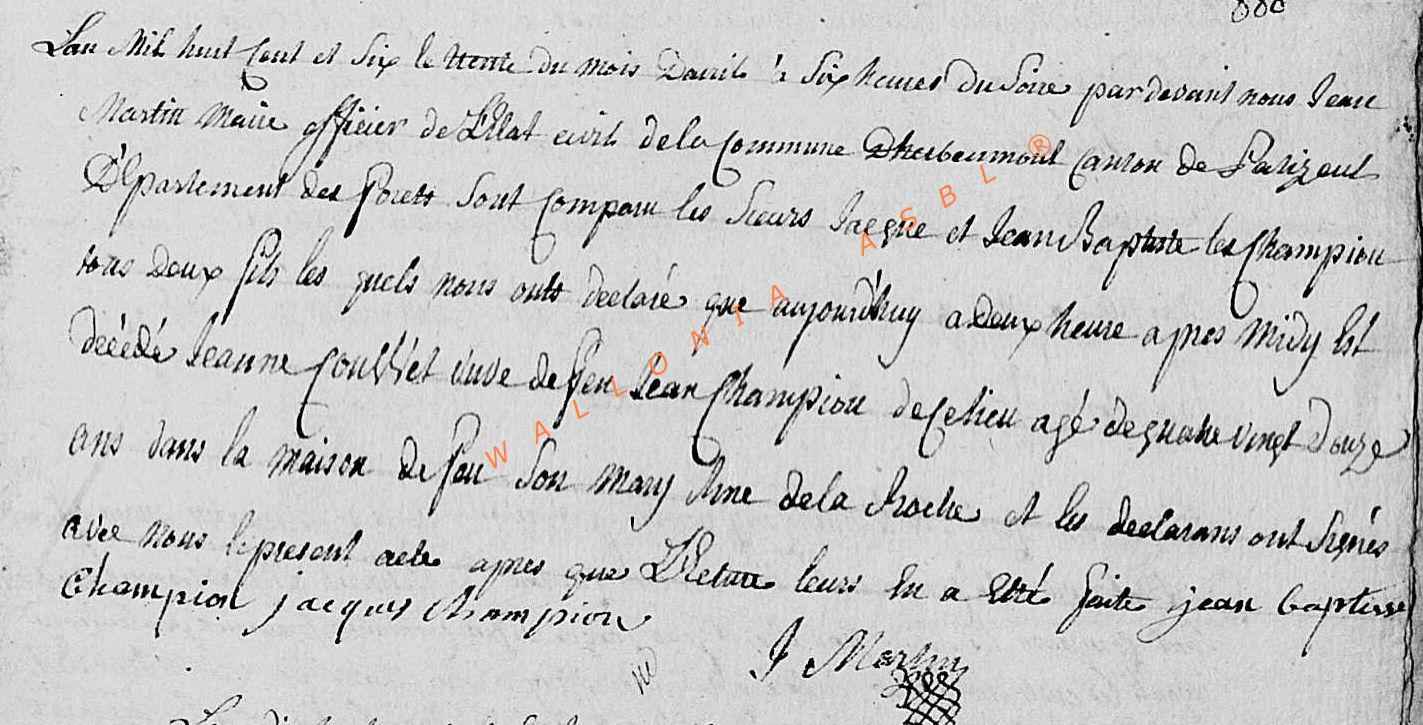 880
Lan Mil huit Cent et Six le trente du mois Davril à Six heures Du Soire pardevant nous Jean
Martin Maire officier de L'Etat civil de la Commune Dherbeumont Canton de Palizeul
Département des Forets Sont Comparu les Sieurs Jacque et Jean Baptiste les Champion
tous deux fils les quels nous onts declaré que aujourd'huy a deux heure apres Midy Est
décédé Jeanne veuve de feu Jean Champion de Ce lieu agé de quatre vingt Douze
ans dans la maison de feu Son mary Rue de la Roche et les declarans ont Signés
avec nous le present acte apres que leurs En a Etté faite jean baptiste
Champion jacques Champion
J Martin
WALLONIA ASBL ®